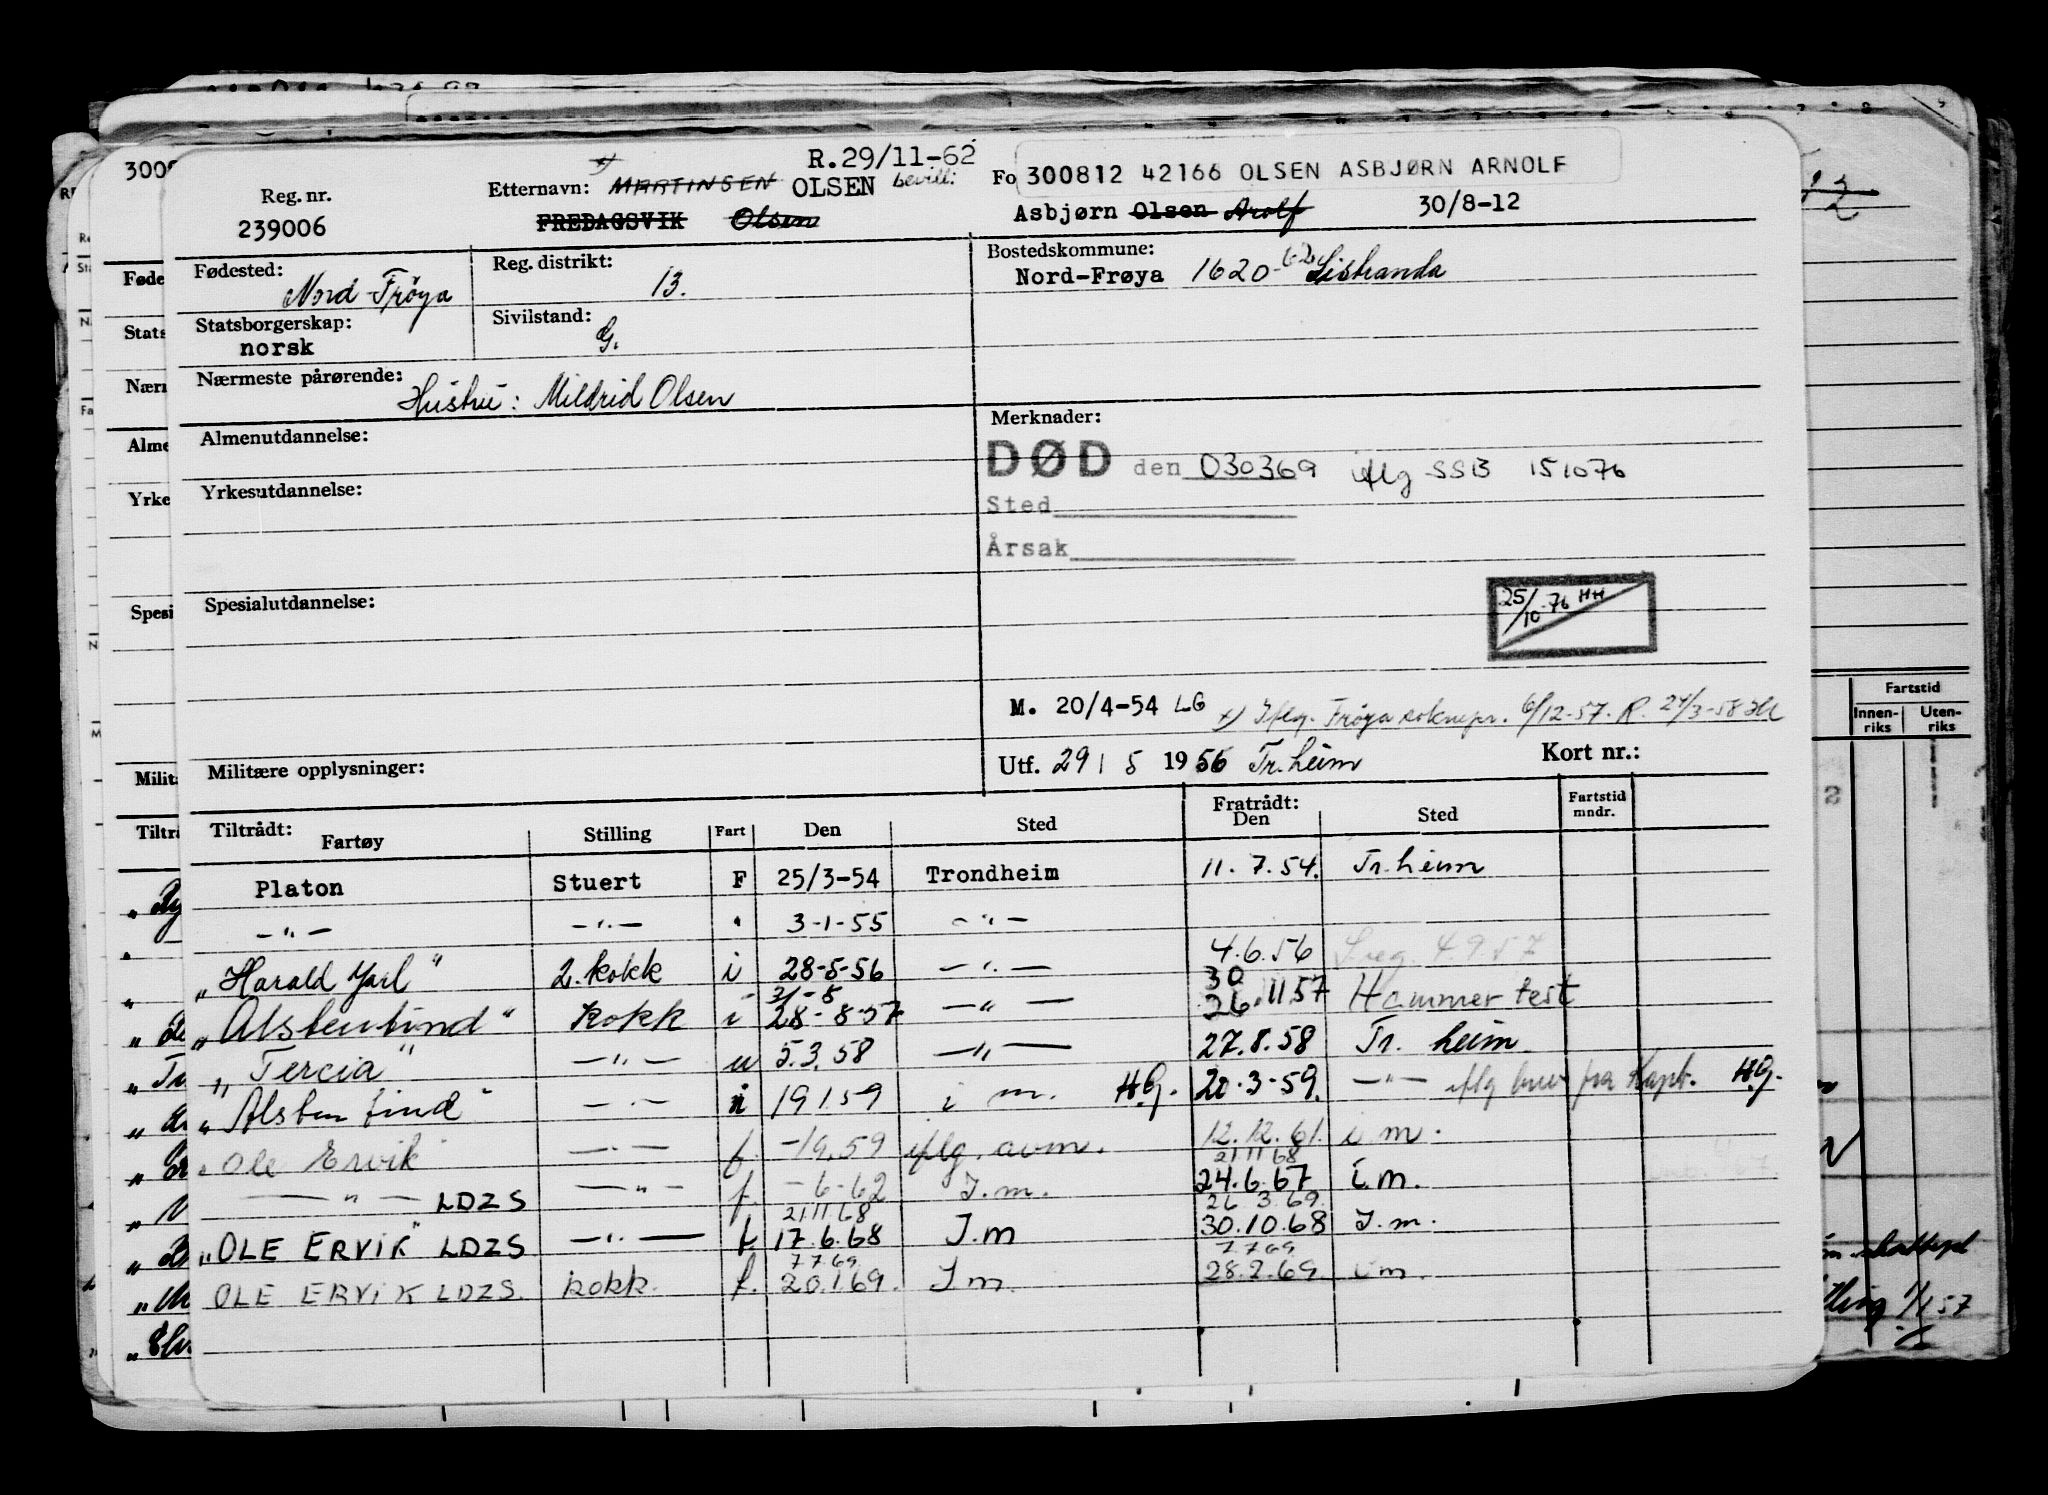 R.29/11-62
Reg. nr. 239006
Etternavn: x) MARTINSEN OLSEN bevill:
FREDAGSVIK Olsen
Fo 300812 42166 OLSEN ASBJØRN ARNOLF
Asbjørn Olsen Arolf 30/8-12
Fødested: Nord-Frøya
Reg. distrikt: 13.
Bostedskommune: Nord-Frøya 1620-62 Sistranda
Statsborgerskap: norsk
Sivilstand: G.
Nærmeste pårørende: Hustru: Mildrid Olsen
Almenutdannelse:
Merknader:
DØD den 030369 iflg SSB 151076
Yrkesutdannelse:
Sted
Årsak
Spesialutdannelse:
25/10-76 HH
M. 20/4-54 LG x) Iflg. Frøya soknepr. 6/12-57. R. 24/3-58
Militære opplysninger:
Utf. 29 / 5 1956 Tr.heim Kort nr.:
Tiltrådt: Fartøy Stilling Fart Den Sted Fratrådt: Den Sted Fartstid mndr.
Platon Stuert F 25/3-54 Trondheim 11.7.54. Tr.heim
—"— —"— " 3-1-55 —"—
"Harald Jarl" 2. kokk i 28-5-56 —"— 4.6.56 Sreg. 4.9.57
31-8 30
"Alstentind" Kokk i 28-8-57 —"— 26.11.57 Hammerfest
"Tercia" —"— u 5.3.58 —"— 27.8.58 Tr. heim
"Alstentind" —"— i 19 1 59 i m. H.G. 20.3-59. —"— iflg brev fra Kapt. H.G.
"Ole Ervik" —"— f. -10.59 iflg. avm. 12.12.61. i m.
21 11 68
—"— LDZS —"— f. -6-62 I.m. 24.6.67 i.m.
21 11 68 26 3 69.
"OLE ERVIK" LDZS —"— f. 17.6.68 I.m 30.10.68 I.m.
7 7 69 7 7 69
OLE ERVIK LDZS. kokk. f. 20.1.69. I m. 28.2.69. i m.
Fartstid
Innenriks Utenriks